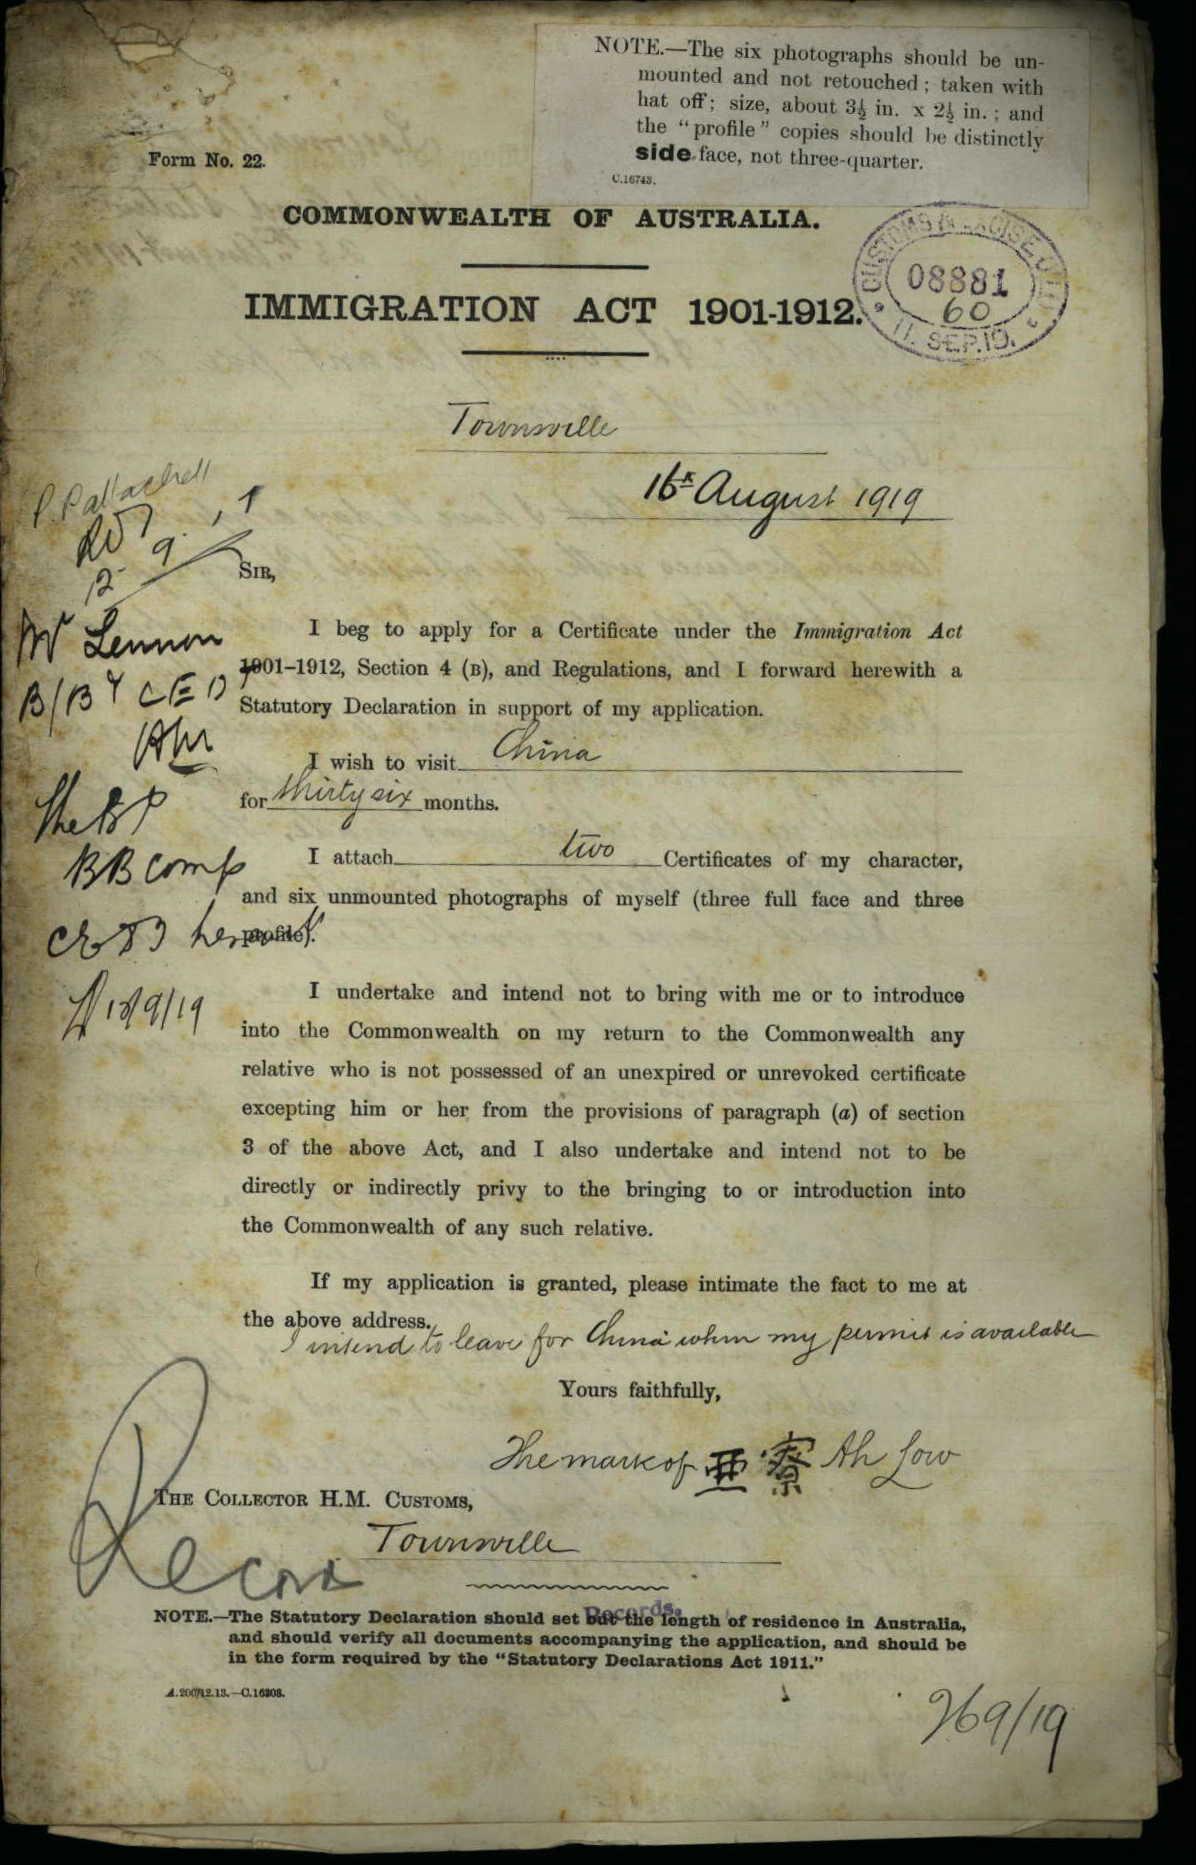 NOTE.—The six photographs should be un-
mounted and not retouched; taken with
hat off; size, about 3½ in. x 2½ in.; and
the "profile" copies should be distinctly
side face, not three-quarter.
C.16743.
Form No. 22.
COMMONWEALTH OF AUSTRALIA.
CUSTOMS & EXCISE
08881
60
11. SEP. 19.
IMMIGRATION ACT 1901-1912.
Townsville
16th August 1919
SIR,
I beg to apply for a Certificate under the Immigration Act
1901–1912, Section 4 (B), and Regulations, and I forward herewith a
Statutory Declaration in support of my application.
I wish to visit China
for thirty six months.
I attach two Certificates of my character,
and six unmounted photographs of myself (three full face and three
profile).
Mr Lennon
The
BB comp
I undertake and intend not to bring with me or to introduce
into the Commonwealth on my return to the Commonwealth any
relative who is not possessed of an unexpired or unrevoked certificate
excepting him or her from the provisions of paragraph (a) of section
3 of the above Act, and I also undertake and intend not to be
directly or indirectly privy to the bringing to or introduction into
the Commonwealth of any such relative.
If my application is granted, please intimate the fact to me at
the above address.
I intend to leave for China when my permit is available
Yours faithfully,
The mark of 亜寮 Ah Low
THE COLLECTOR H.M. CUSTOMS,
Townsville
Record
Records.
NOTE.—The Statutory Declaration should set out the length of residence in Australia,
and should verify all documents accompanying the application, and should be
in the form required by the "Statutory Declarations Act 1911."
A.200/12.13.—C.16208.
269/19